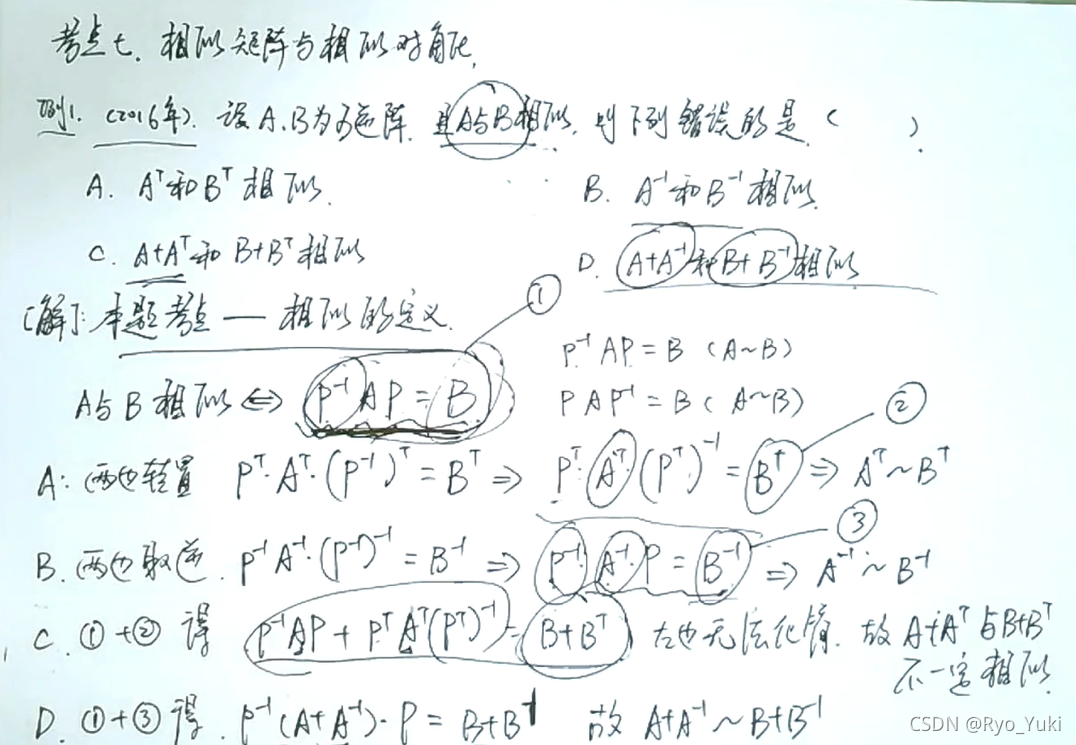 考点七、相似矩阵与相似对角化.
例1. (2016年). 设A.B为可逆矩阵. 且A与B相似. 则下列错误的是 ( )
A. Aᵀ和Bᵀ相似. B. A⁻¹和B⁻¹相似.
C. A+Aᵀ和B+Bᵀ相似 D. A+A⁻¹和B+B⁻¹相似.
[解]: 本题考点 — 相似的定义. ①
P⁻¹AP = B (A~B)
A与B相似 ⇔ P⁻¹AP = B PAP⁻¹ = B (A~B)
②
A: 两边转置 Pᵀ·Aᵀ·(P⁻¹)ᵀ = Bᵀ ⇒ Pᵀ·Aᵀ·(Pᵀ)⁻¹ = Bᵀ ⇒ Aᵀ~Bᵀ
③
B. 两边取逆. P⁻¹A⁻¹·(P⁻¹)⁻¹ = B⁻¹ ⇒ P⁻¹A⁻¹P = B⁻¹ ⇒ A⁻¹~B⁻¹
C. ①+② 得 P⁻¹AP + PᵀAᵀ(Pᵀ)⁻¹ = B+Bᵀ 左边无法化简. 故A+Aᵀ与B+Bᵀ
不一定相似.
D. ①+③ 得. P⁻¹(A+A⁻¹)·P = B+B⁻¹ 故 A+A⁻¹~B+B⁻¹
CSDN @Ryo_Yuki